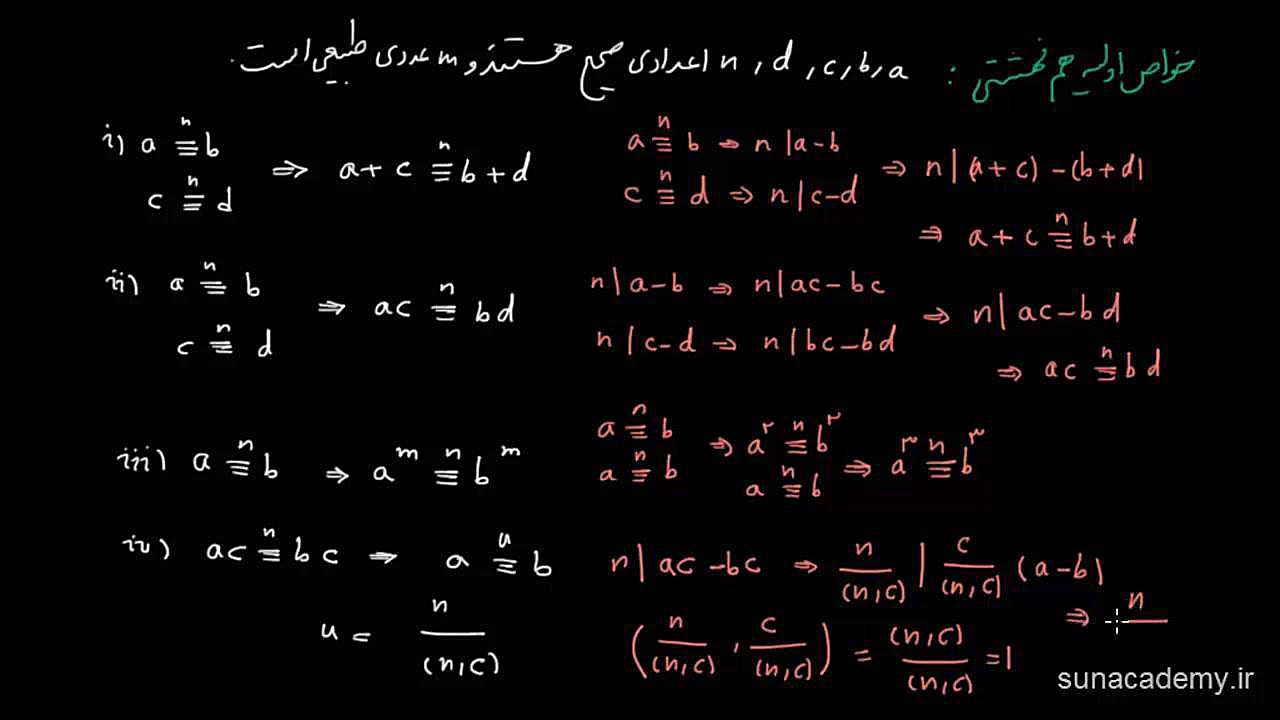 خواص اولیه هم نهشتی : a , b , c , d , n اعدادی صحیح هستند و m عددی طبیعی است.
i) a ≡ⁿ b
c ≡ⁿ d
⇒ a + c ≡ⁿ b + d
a ≡ⁿ b ⇒ n | a-b
c ≡ⁿ d ⇒ n | c-d
⇒ n | (a+c) - (b+d)
⇒ a + c ≡ⁿ b+d
ii) a ≡ⁿ b
c ≡ⁿ d
⇒ ac ≡ⁿ bd
n | a-b ⇒ n | ac-bc
n | c-d ⇒ n | bc-bd
⇒ n | ac-bd
⇒ ac ≡ⁿ bd
iii) a ≡ⁿ b ⇒ a^m ≡ⁿ b^m
a ≡ⁿ b
a ≡ⁿ b
⇒ a^۲ ≡ⁿ b^۲
a ≡ⁿ b
⇒ a^۳ ≡ⁿ b^۳
iv) ac ≡ⁿ bc ⇒ a ≡ᵘ b
u = n/(n,c)
n | ac-bc ⇒ n/(n,c) | c/(n,c) (a-b)
⇒ n
(n/(n,c) , c/(n,c)) = (n,c)/(n,c) = 1
sunacademy.ir